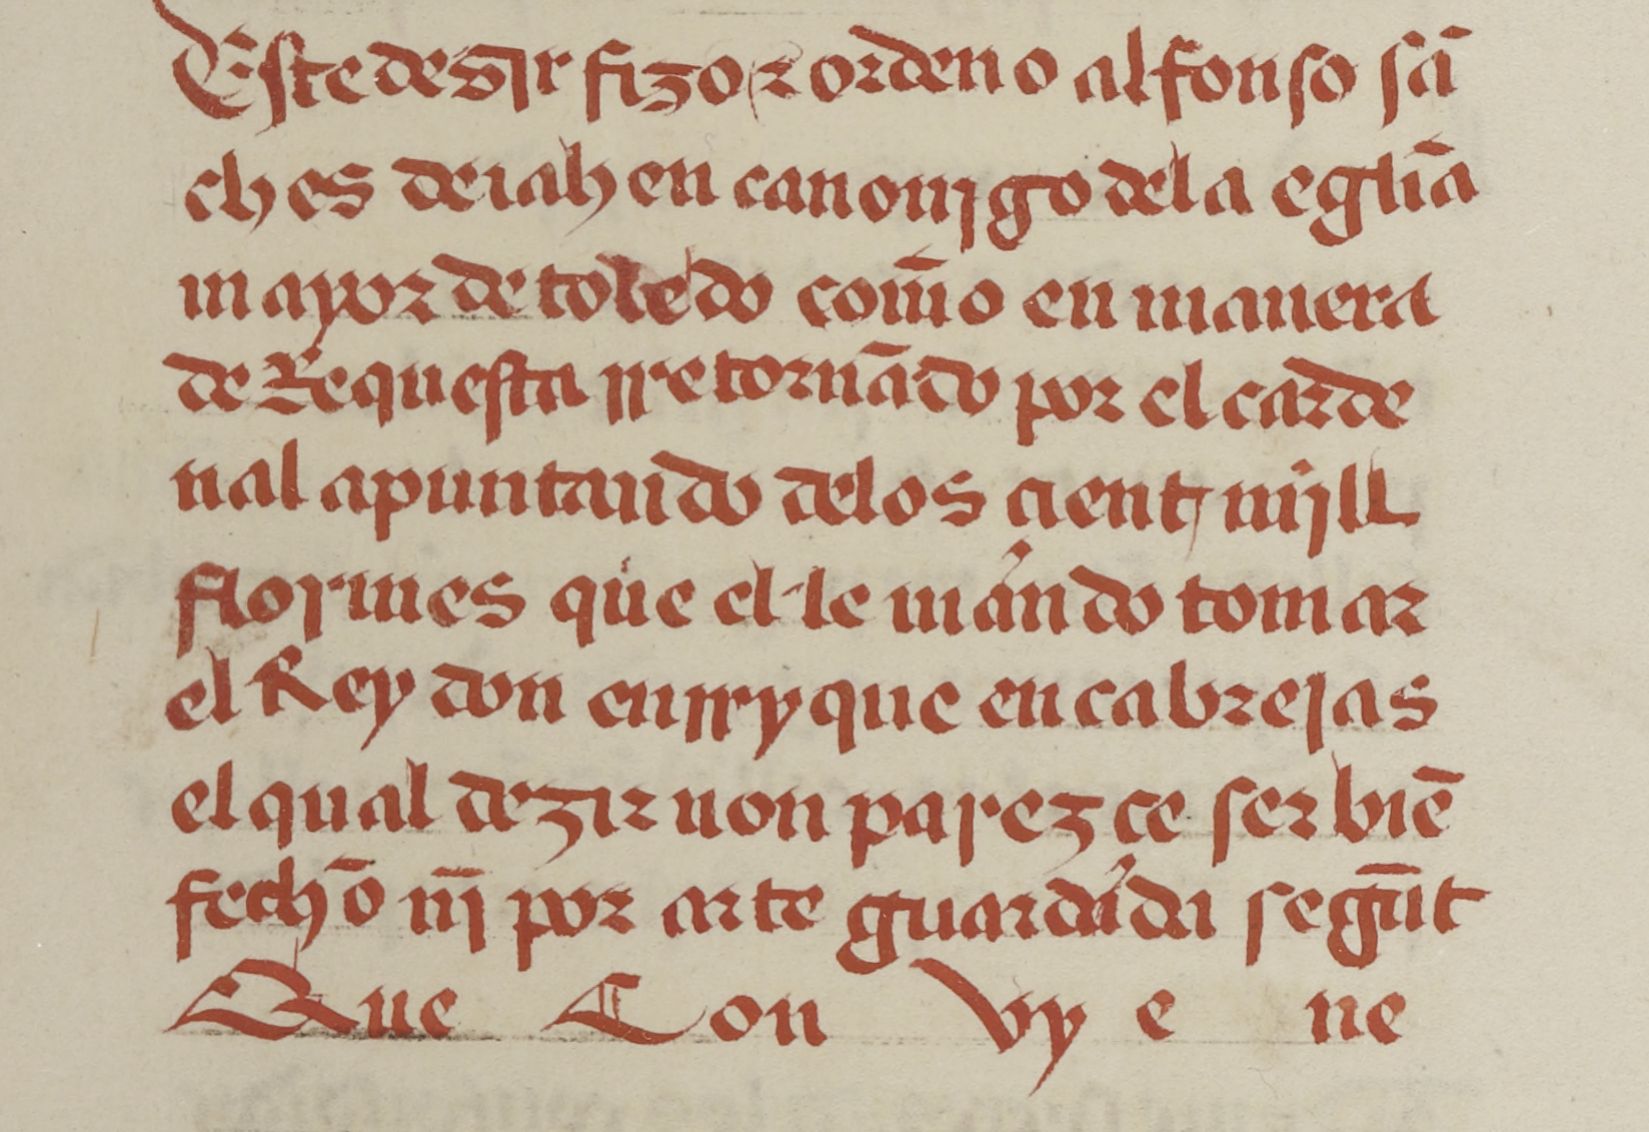 Este desir fizo ⁊ ordeno alfonso sā
ches de iahen canonjgo dela eglīa
mayor de toledo com̄o en manera
de Requesta rretornādo por el carde
nal apuntando delos çient mjll
florines que el le mando tomar
el Rey don enrryque en cabrejas
el qual dezir non parezçe ser biē
fechō nj̄ por arte guardada segūt
Que Con vy e ne